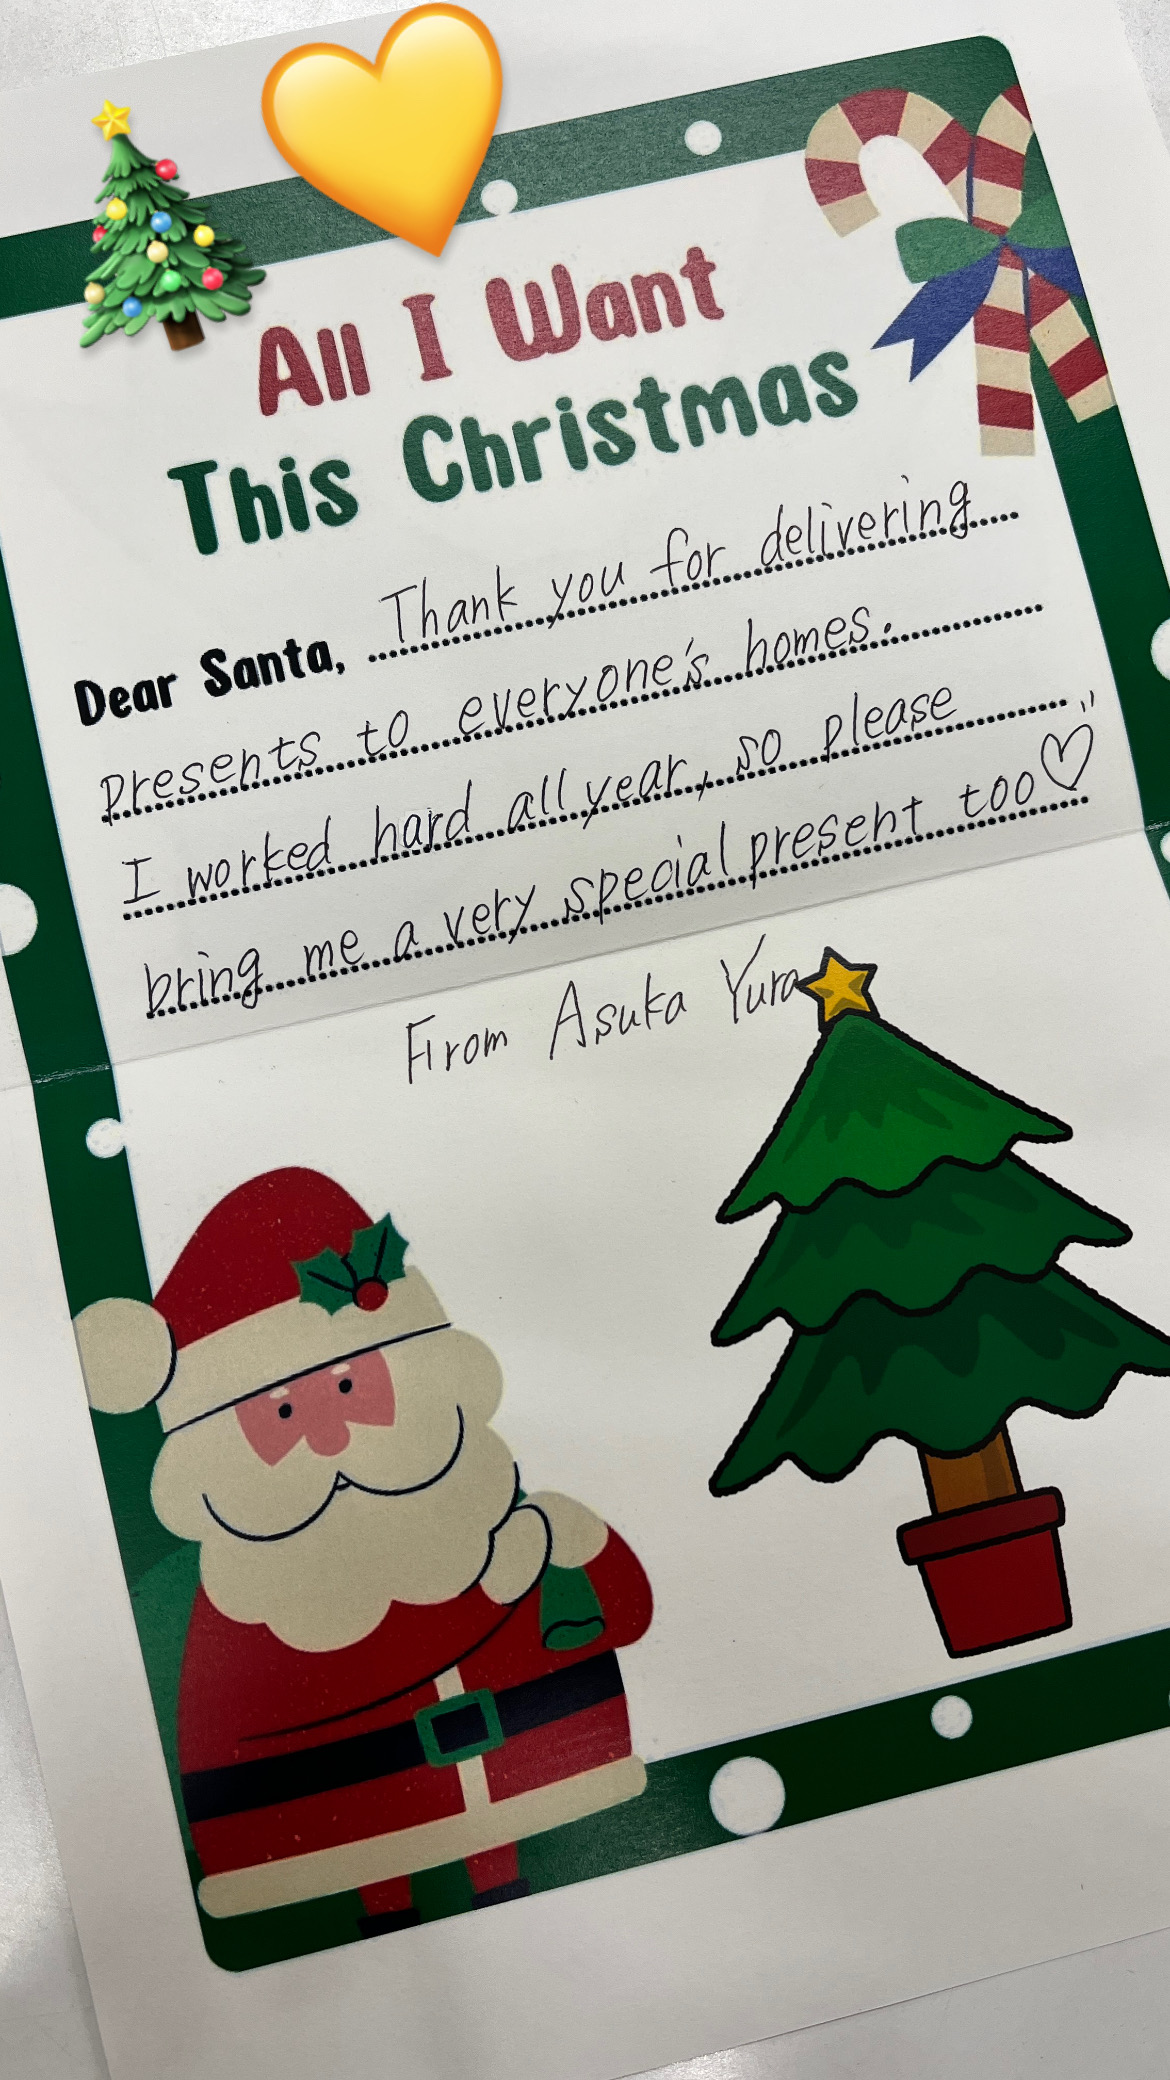 All I Want
This Christmas
Dear Santa, Thank you for delivering
presents to everyone's homes.
I worked hard all year, so please
bring me a very special present too♡
From Asuka Yura